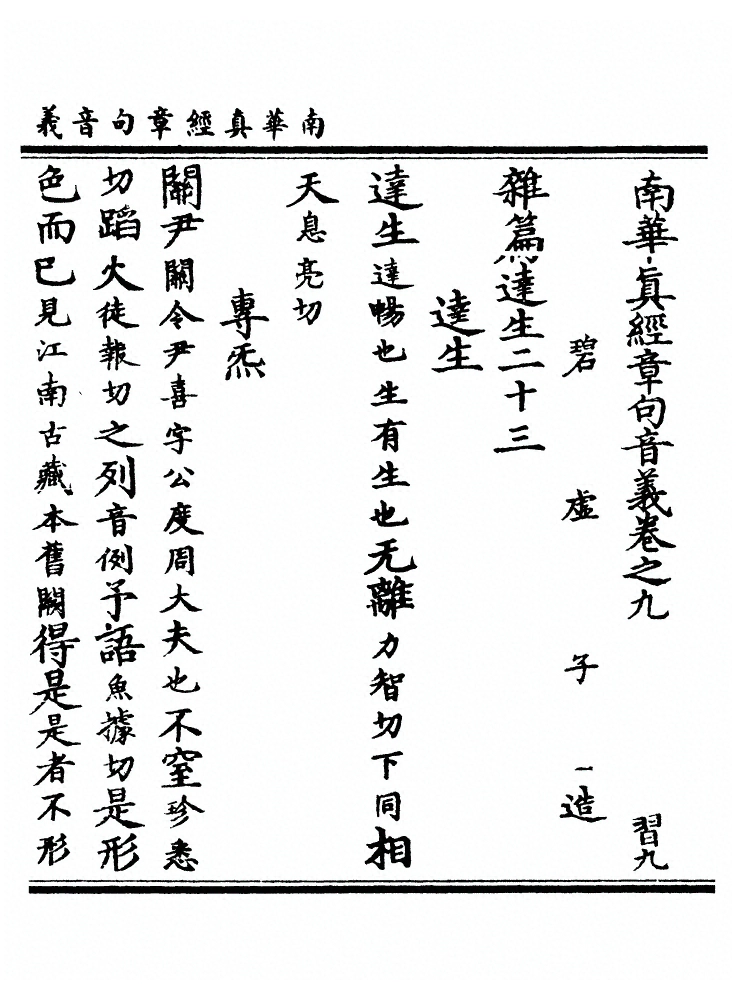 南華真經章句音義
南華眞經章句音義卷之九 習九
碧虛子造
雜篇達生二十三
達生
達生達暢也生有生也无離力智切下同相
天息亮切
專炁
關尹關令尹喜字公度周大夫也不窒珍悉
切蹈火徒報切之列音例予語魚據切是形
色而已見江南古藏本舊闕得是是者不形